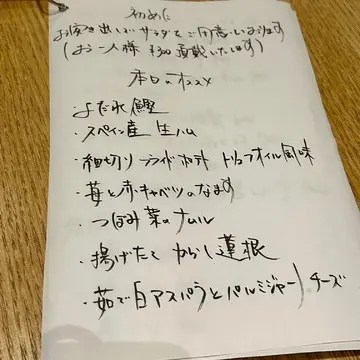 初めに
お突き出しでサラダをご用意しております
(お一人様 ¥300 頂戴いたします)
本日のオススメ
・よだれ鰹
・スペイン産 生ハム
・細切りフライドポテト トリュフオイル風味
・苺と赤キャベツのなます
・つぼみ菜のナムル
・揚げたて からし蓮根
・茹で白アスパラとパルミジャーノチーズ